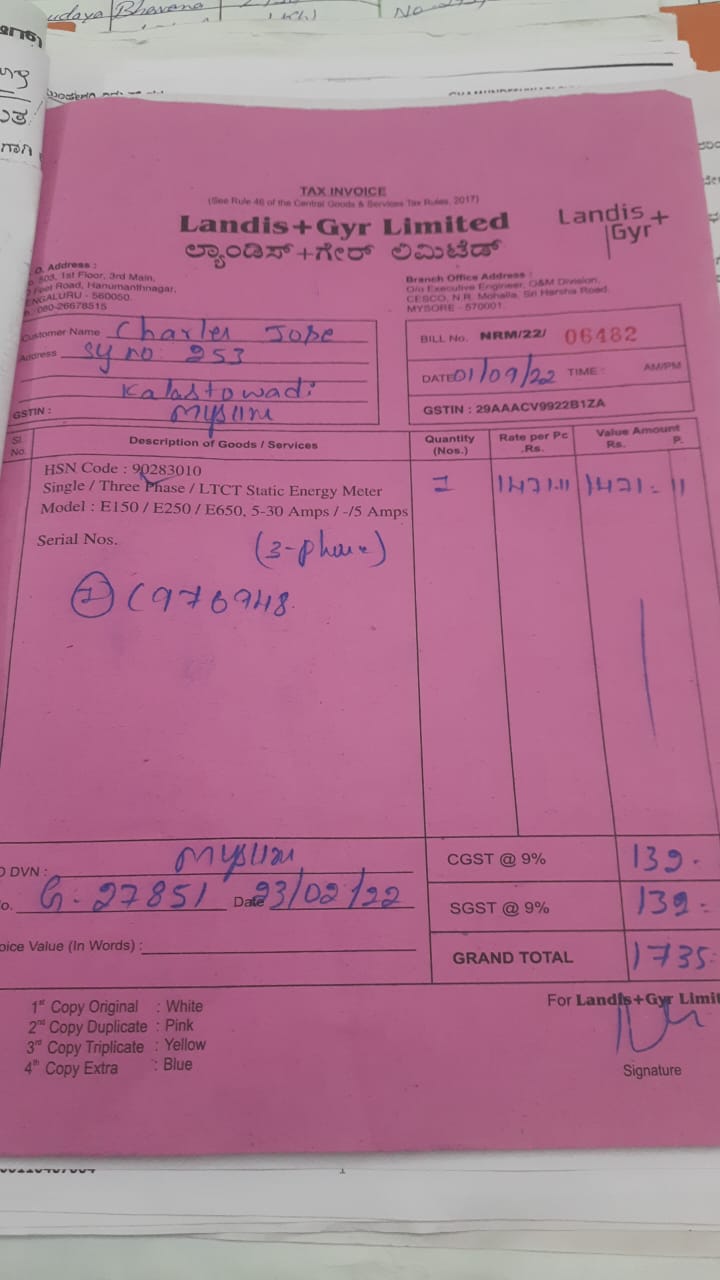 udaya Bhavana
TAX INVOICE
(See Rule 46 of the Central Goods & Services Tax Rules, 2017)
Landis+Gyr Limited
ಲ್ಯಾಂಡಿಸ್+ಗೇರ್ ಲಿಮಿಟೆಡ್
Landis+
Gyr
O. Address :
503, 1st Floor, 3rd Main,
Feet Road, Hanumanthnagar,
ENGALURU - 560050.
080-26678515
Branch Office Address :
O/o Executive Engineer, O&M Division,
CESCO, N.R. Mohalla, Sri Harsha Road,
MYSORE - 570001.
Customer Name Charles Jose
Address Sy no 253
Kalastowadi
GSTIN : Mysuru
BILL No. NRM/22/ 06482
DATE 01/09/22 TIME : AM/PM
GSTIN : 29AAACV9922B1ZA
Sl. No. Description of Goods / Services Quantity (Nos.) Rate per Pc .Rs. Value Amount Rs. P.
HSN Code : 90283010
Single / Three Phase / LTCT Static Energy Meter 1 1471.11 1471=11
Model : E150 / E250 / E650, 5-30 Amps / -/5 Amps
Serial Nos. (3-phase)
① C976948
DVN : Mysuru
o. G. 27851 Date 23/02/22
oice Value (In Words) :
CGST @ 9% 132.
SGST @ 9% 132=
GRAND TOTAL 1735.
1st Copy Original : White
2nd Copy Duplicate : Pink
3rd Copy Triplicate : Yellow
4th Copy Extra : Blue
For Landis+Gyr Limit
Signature